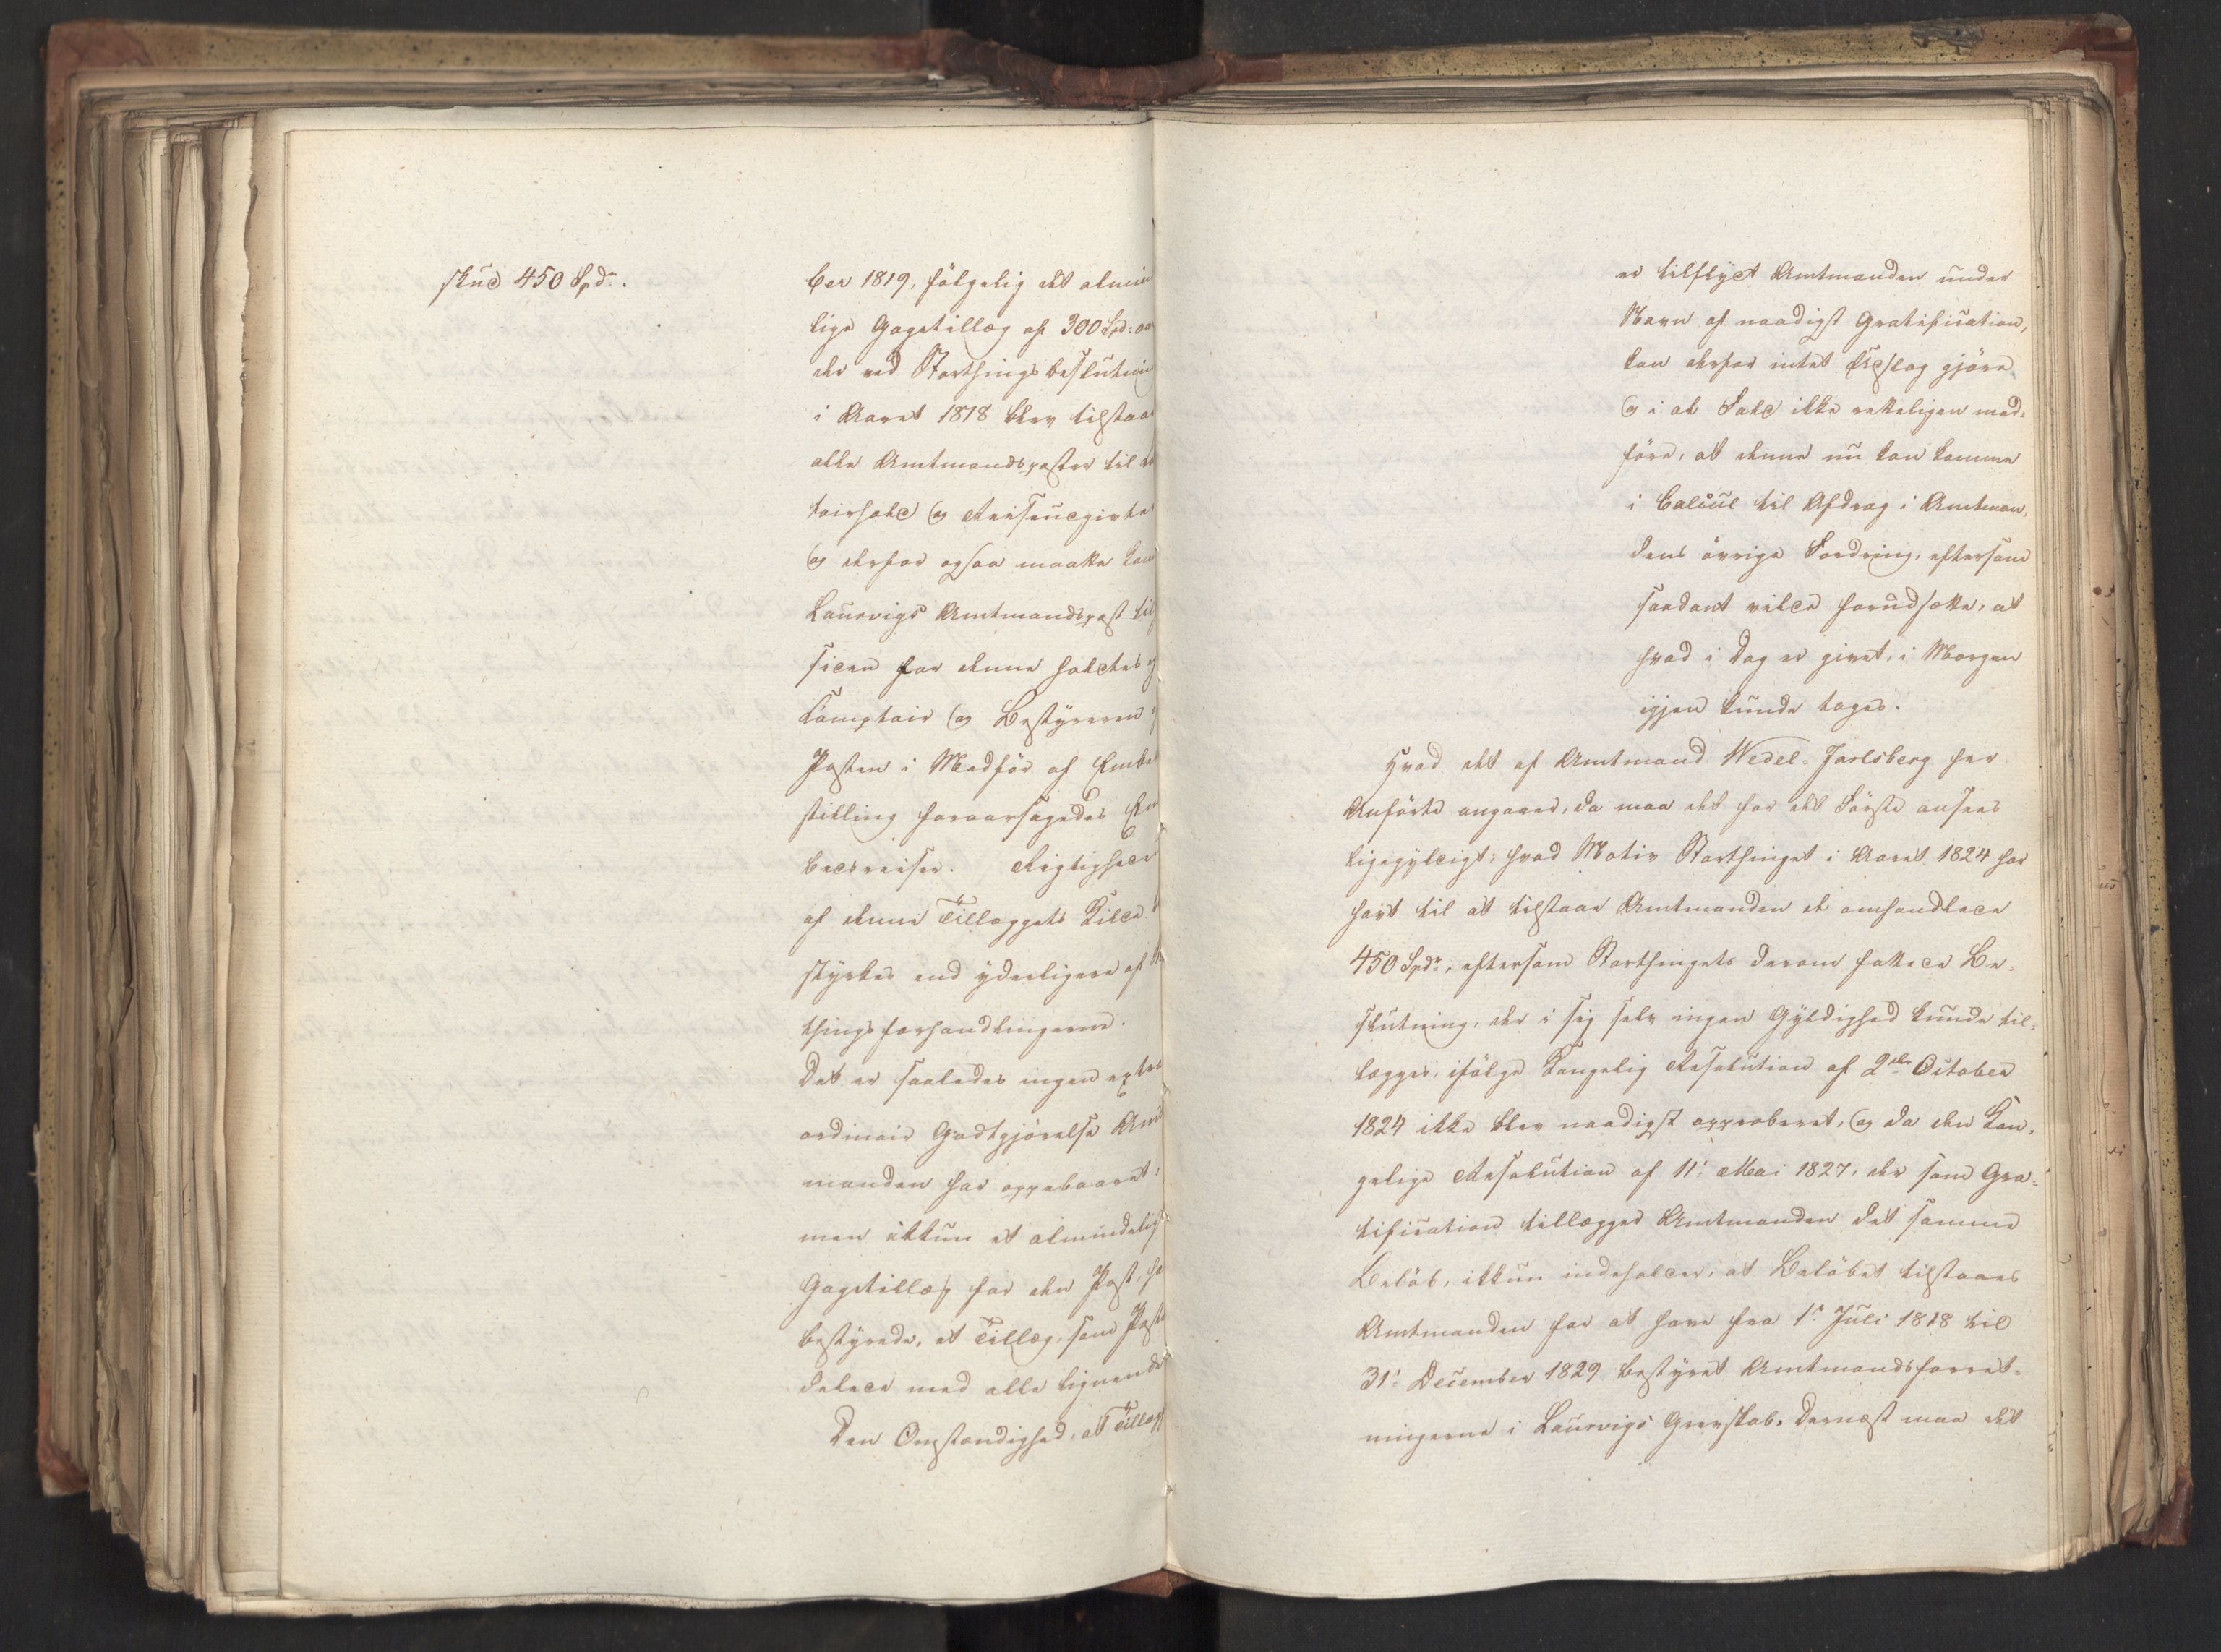 skud 450 Spd.
ber 1819, fölgelig det almin
lige Gagetillæg af 300 Spd: aar
der ved Storthings beslutnin
i Aaret 1818 blev tilstaa
alle Amtmandsposter til
toirhold og Reiseudgivter
og derfor ogsaa maatte
Laurvigs Amtmandspost til
siden for denne holdtes
Comptoir og Bestyreren
Posten i Medför af Embe
stilling foraarsagedes Em
bedsreiser. Rigtighed
af denne Tillæggets Kilde
styrkes end yderligere af
thingsforhandlingerne.
Det er saaledes ingen extra
ordinair Godtgjörelse Amt
manden har oppebaaret,
men ikkun et almindeligt
Gagetillæg for den Post, ha
bestyrede, et Tillæg, som Poste
deleed med alle lignende
Den Omstændighed, at Tillægg
er tilflydt Amtmanden under
Navn af naadigst Gratification,
kan derfor intet Udslag gjöre
og i al Fald ikke retteligen med-
före, at denne nu kan komme
i Calcul til Afdrag i Amtman-
dens övrige Fordring, eftersom
saadant vilde forudsætte, at
hvad i Dag er givet, i Morgen
igjen kunde tages.
Hvad det af Amtmand Wedel-Jarlsberg her
Anförte angaaer, da maa det for det Förste ansees
ligegyldigt, hvad Motiv Storthinget i Aaret 1824 har
havt til at tilstaae Amtmanden de omhandlede
450 Spdr, eftersom Storthingets derom fattede Be-
slutning, der i sig selv ingen Gyldighed kunde til-
lægges, ifölge Kongelig Resolution af 2den October
1824 ikke blev naadigst approberet, og da den Kon-
gelige Resolution af 11' Mai 1827, der som Gra-
tification tillægger Amtmanden det samme
Belöb, ikkun indeholder, at Belöbet tilstaaes
Amtmanden for at have fra 1' Juli 1818 til
31' December 1829 bestyret Amtmandsforret-
ningerne i Laurvigs Grevskab. Dernæst maa det